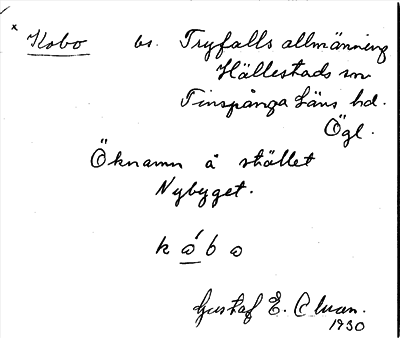 x Kobo bs. Tryfalls allmänning
Hällestads sn
Finspånga läns hd.
Ögl.
Öknamn å stället
Nybyget.
Gustaf E.
1930